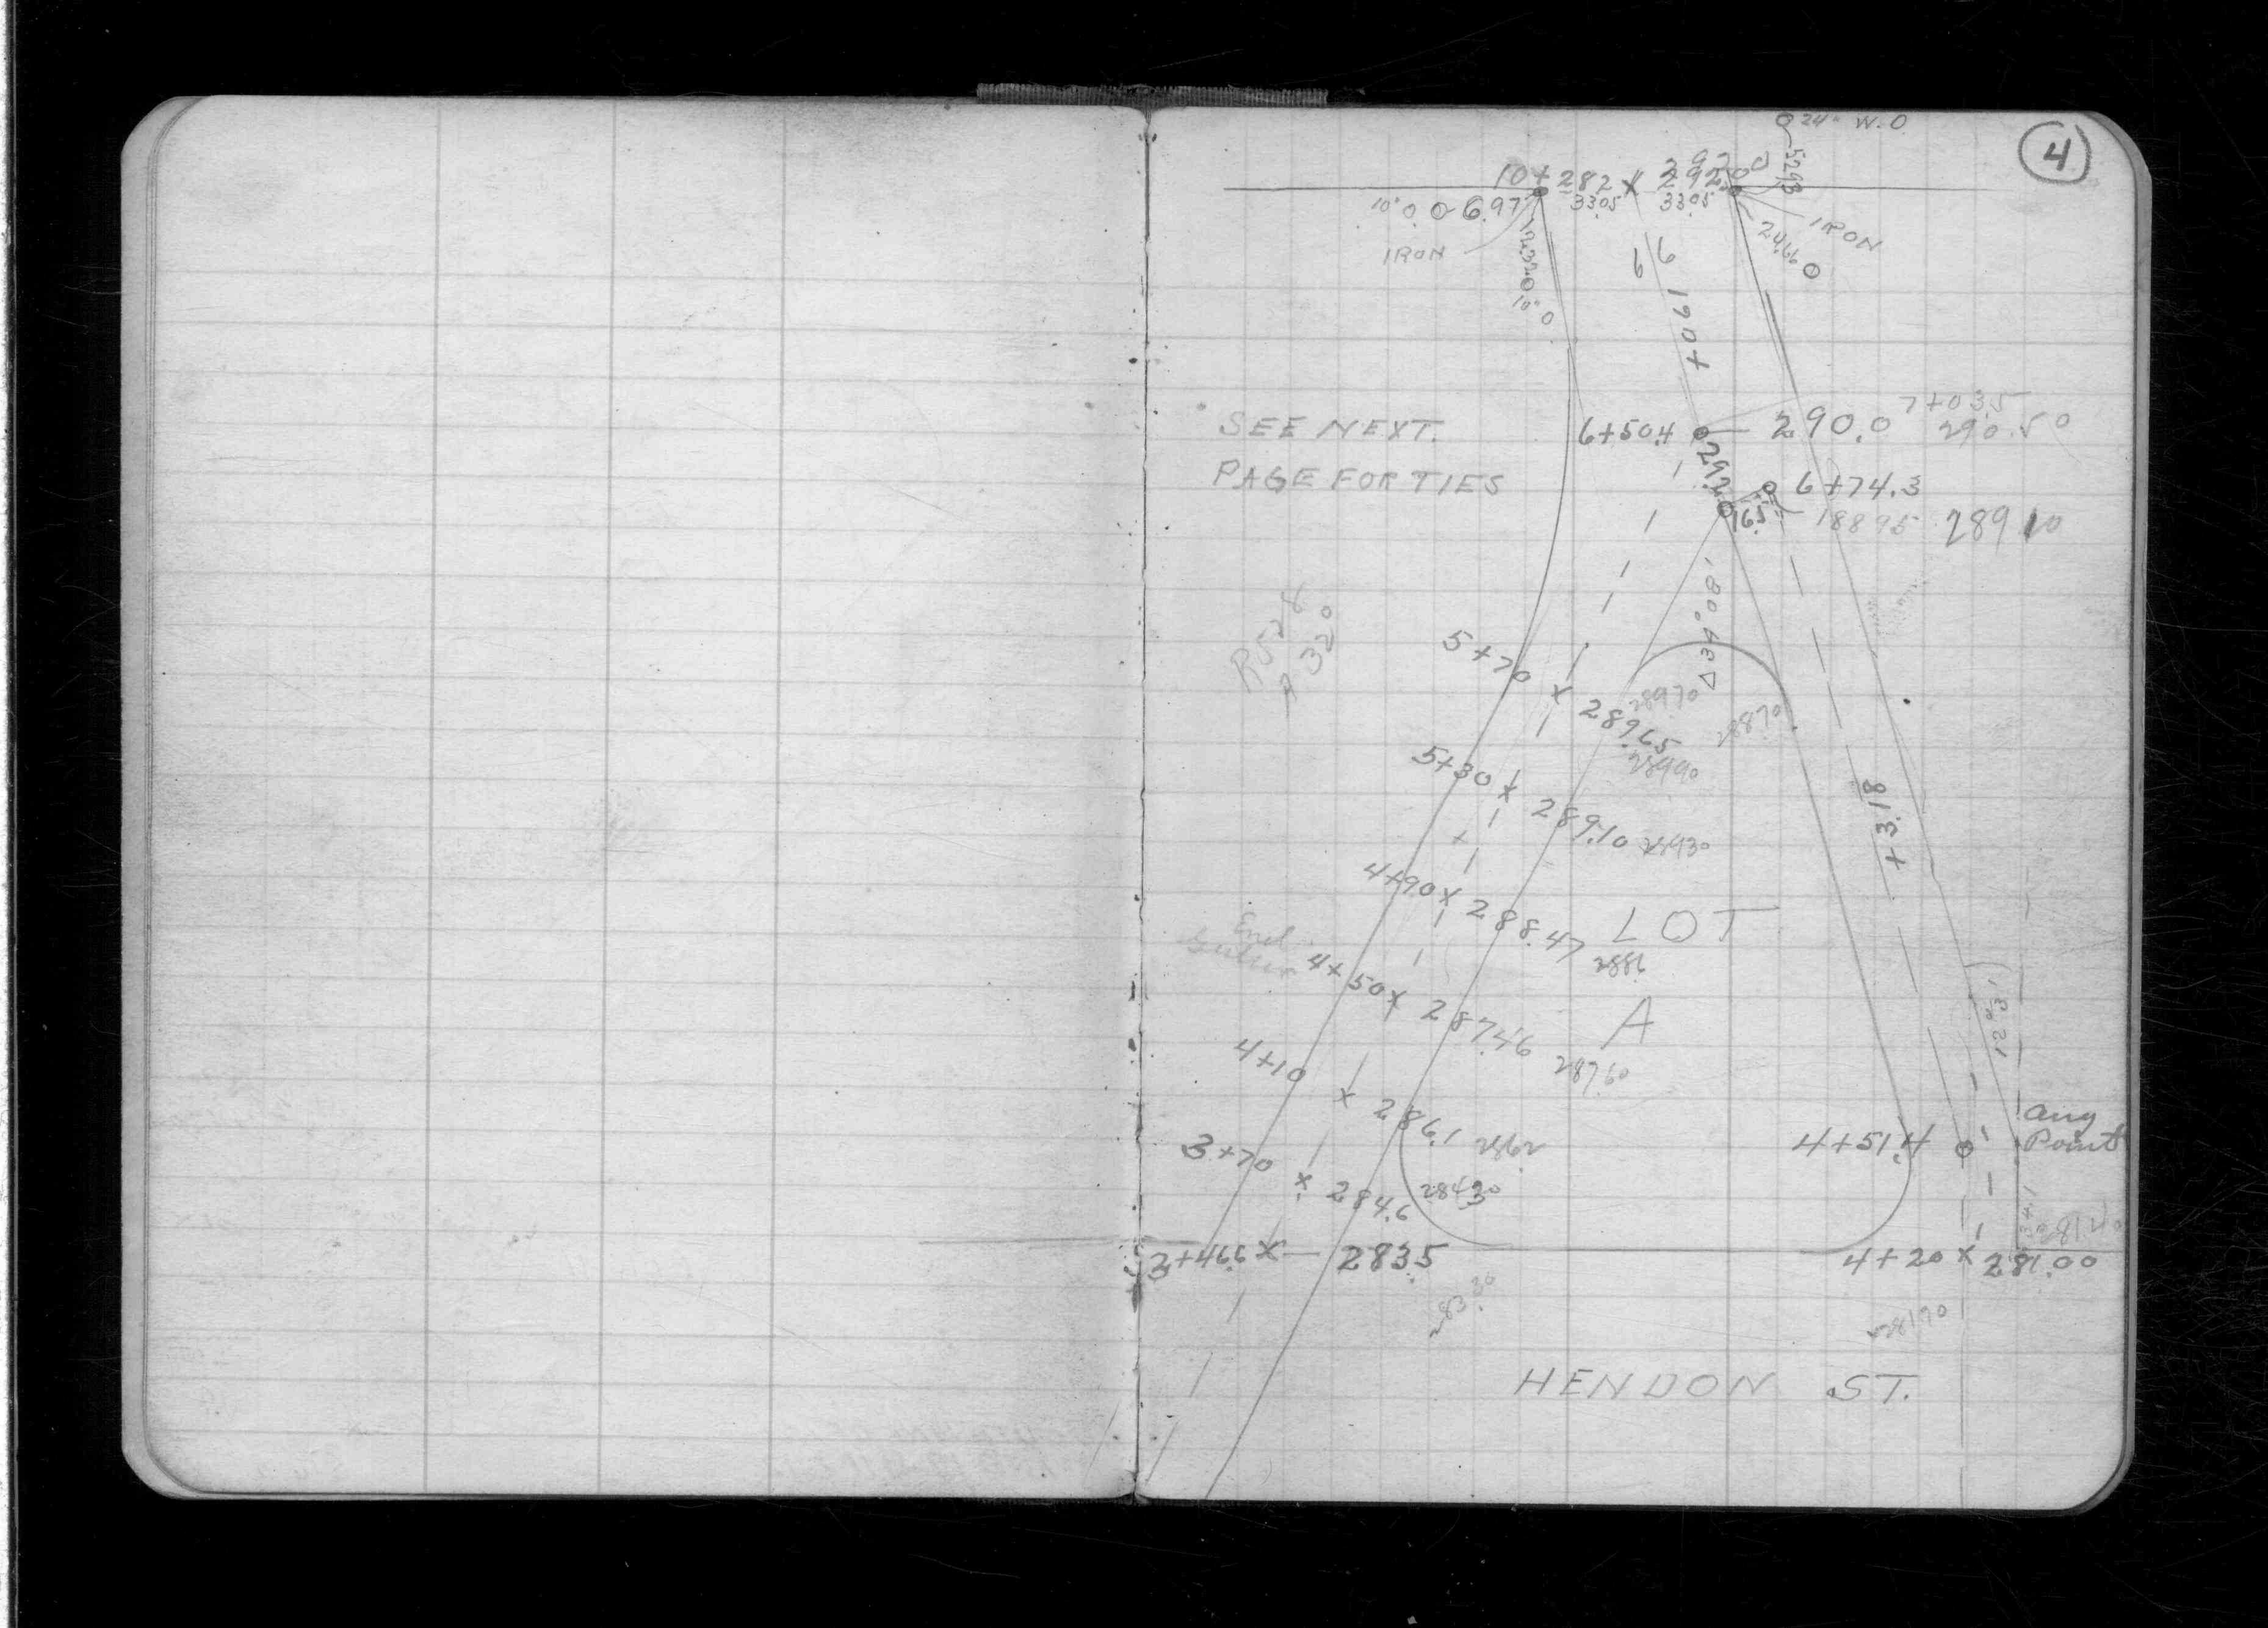 4
24" W.O.
52.93
10+28.2 x 292.00
10" O 6.97
33.05 33.05
IRON
IRON
12.32
10" O
24.66
6 6
+ 0.61
7+03.5
6+50.4 290.0 290.50
SEE NEXT
PAGE FOR TIES
292.0
6+74.3
16.5
188.95 289.10
Δ34°08'
5+70 x 289.65
289.70
288.70
289.90
5+30 x 289.10 289.30
+3.18
4+90 x 288.47
288.6
LOT
A
End
4+50 x 287.46
287.60
4+10 x 286.1 286.2
Ang
Point
4+51.4
3+70 x 284.6 284.30
281.40
3+46.6 x 283.5
4+20 x 281.00
283.30
281.90
HENDON ST.